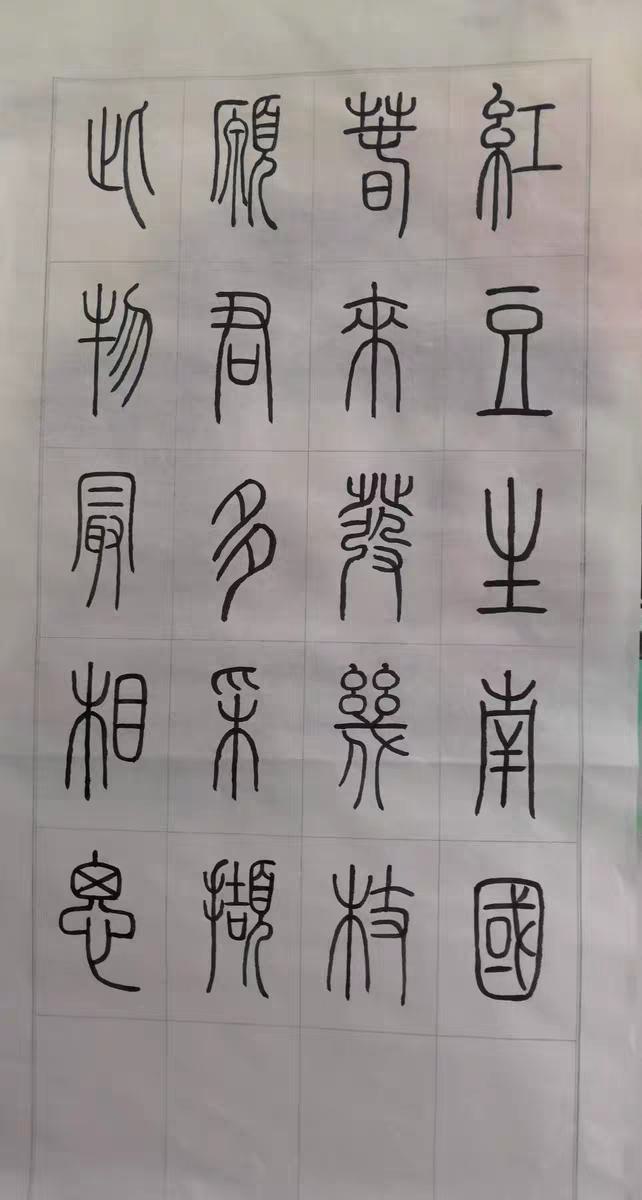 紅豆生南國
萅來發幾枝
願君多采擷
此物最相思